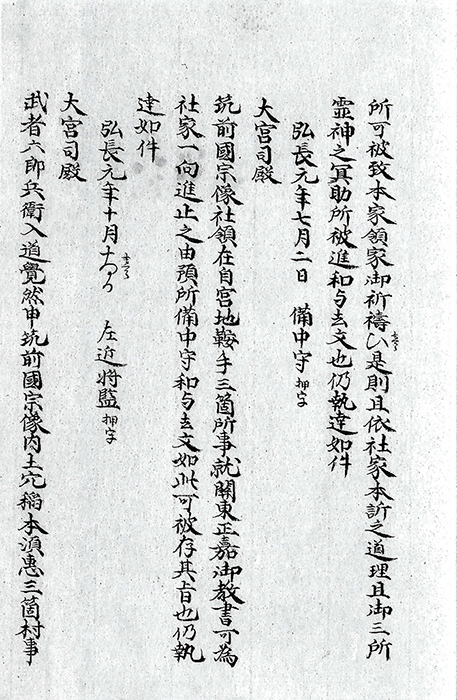 所可被致本家領家御祈禱也是則且依社家本訴之道理且御三所
霊神之冥助所被進和与去文也仍執達如件
弘長元年七月二日 備中守 押字
大宮司殿
筑前國宗像社領在自宮地鞍手三箇所事就關東正嘉御教書可為
社家一向進止之由預所備中守和与去文如此可被存其旨也仍執
達如件
弘長元年十月 左近将監 押字
大宮司殿
武者六郎兵衛入道覺然申筑前國宗像内土穴稲本須恵三箇村事